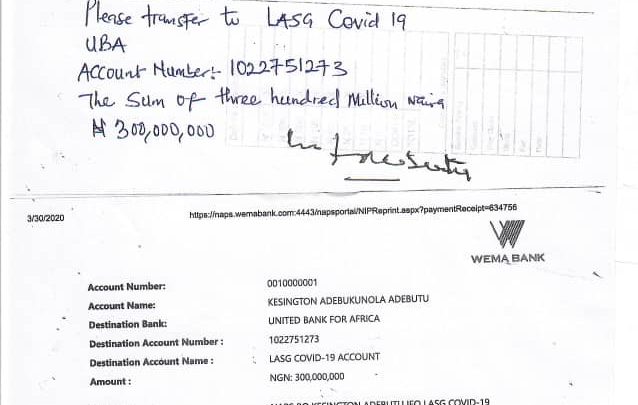 Please transfer to LASG Covid 19
UBA
Account Number:- 1022751273
The Sum of three hundred Million Naira
₦ 300,000,000
3/30/2020
https://naps.wemabank.com:4443/napsportal/NIPReprint.aspx?paymentReceipt=634756
WEMA BANK
Account Number: 0010000001
Account Name: KESINGTON ADEBUKUNOLA ADEBUTU
Destination Bank: UNITED BANK FOR AFRICA
Destination Account Number : 1022751273
Destination Account Name : LASG COVID-19 ACCOUNT
Amount : NGN: 300,000,000
KESINGTON ADEBUTU IFO LASG COVID-19